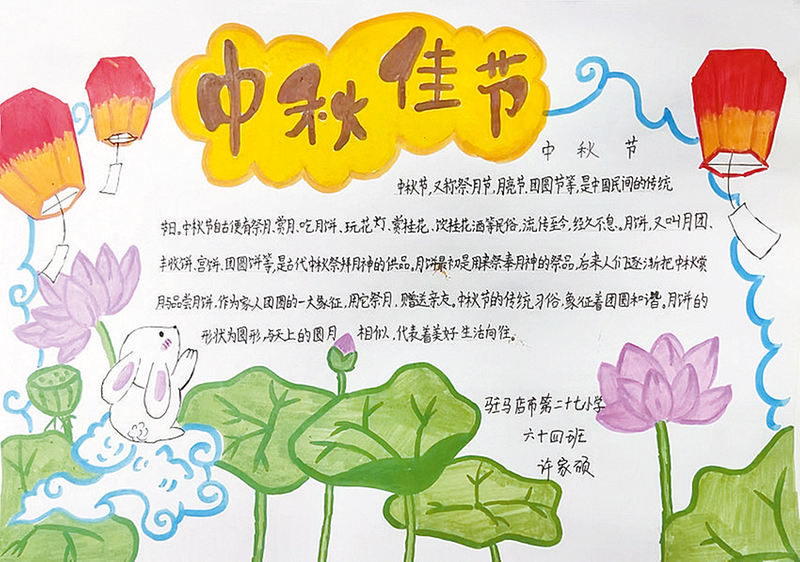 中秋佳节
中秋节
中秋节,又称祭月节、月亮节、团圆节等,是中国民间的传统
节日。中秋节自古便有祭月、赏月、吃月饼、玩花灯、赏桂花、饮桂花酒等民俗,流传至今,经久不息。月饼,又叫月团、
丰收饼、宫饼、团圆饼等,是古代中秋祭拜月神的供品。月饼最初是用来祭奉月神的祭品,后来人们逐渐把中秋赏
月与品尝月饼,作为家人团圆的一大象征,用它祭月、赠送亲友。中秋节的传统习俗,象征着团圆和谐。月饼的
形状为圆形,与天上的圆月 相似,代表着美好生活向往。
驻马店市第二十七小学
六十四班
许家硕